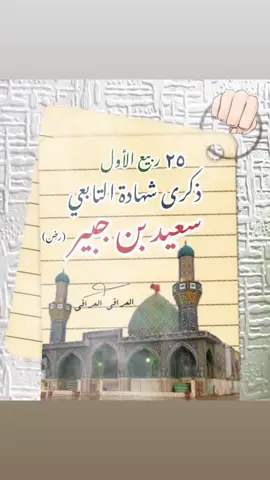 ٢٥ ربيع الأول
ذكرى شهادة التابعي
سعيد بن جبير (رض)
العراقي العراقي